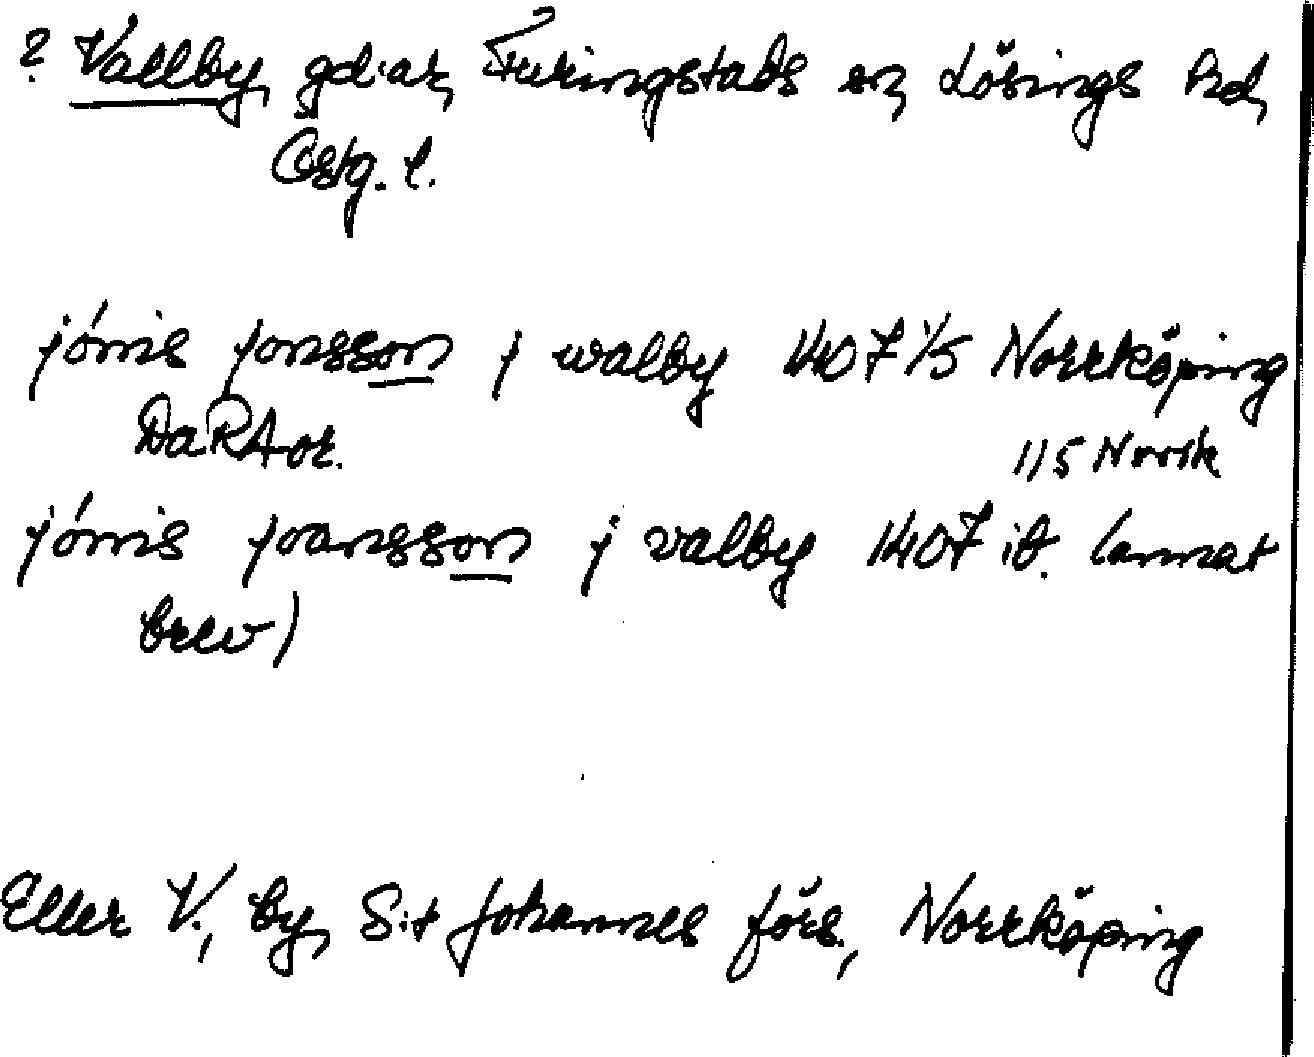 ? Vallby, gd·ar, Furingstads sn, Lösings hd,
Östg. l.
jónis jonsson j walby 1407 1/5 Norrköping
Da RA or.
1/5 Norrk
jónis joansson j valby 1407 ib. (annat
brev)
Eller V., by, S:t Johannes förs., Norrköping